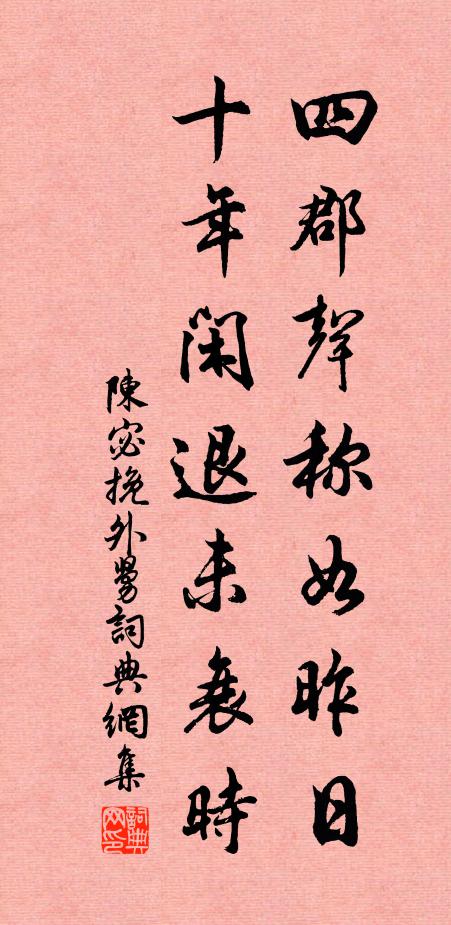 四郡聲称如昨日
十年闲退未衰時
陳宓挽外舅詞典網集
詞典网印